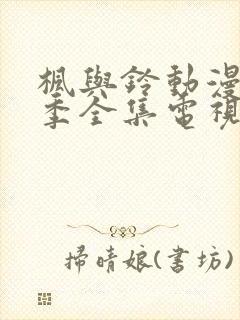 楓與鈴動漫
季全集電視
掃晴娘(書坊)